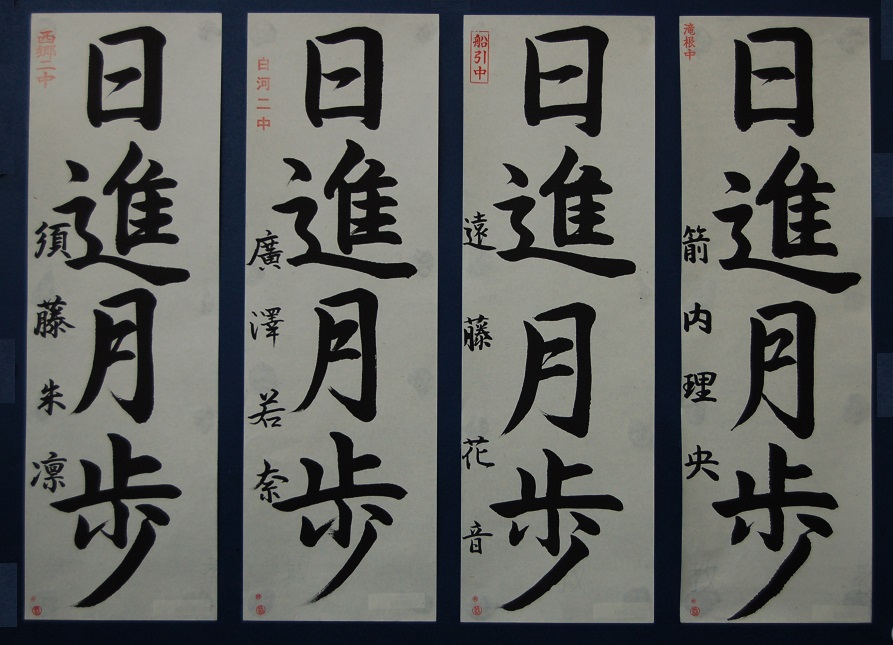 西郷二中
日進月歩
須藤朱凛
白河二中
日進月歩
廣澤若奈
船引中
日進月歩
遠藤花音
滝根中
日進月歩
箭内理央